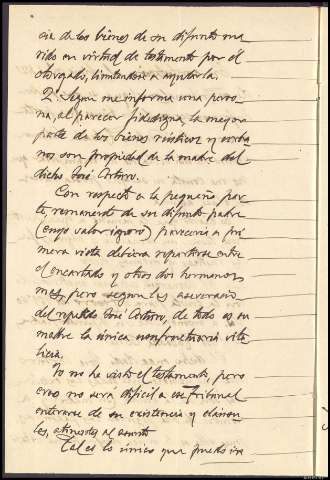 cie de los bienes de su difunto ma
rido en virtud de testamento por él
otorgado, limitándose a
2º Según me informa una perso
na, al parecer fidedigna, la mayor
parte de los bienes rústicos y urba
nos son propiedad de la madre del
dicho José Arturo.
Con respecto a la pequeña par
te remanente de su difunto padre
(cuyo valor ignoro) parecería a pri
mera vista debiera repartirse entre
el encartado y otros dos hermanos
mas, pero segun la aseveración
del repetido José Arturo, de todo es su
madre la única usufructuaria vita
licia.
Yo no he visto el testamento, pero
creo no será difícil a ese Tribunal
enterarse de su existencia y cláusu
las, atinentes al asunto
Tal es lo único que puedo in